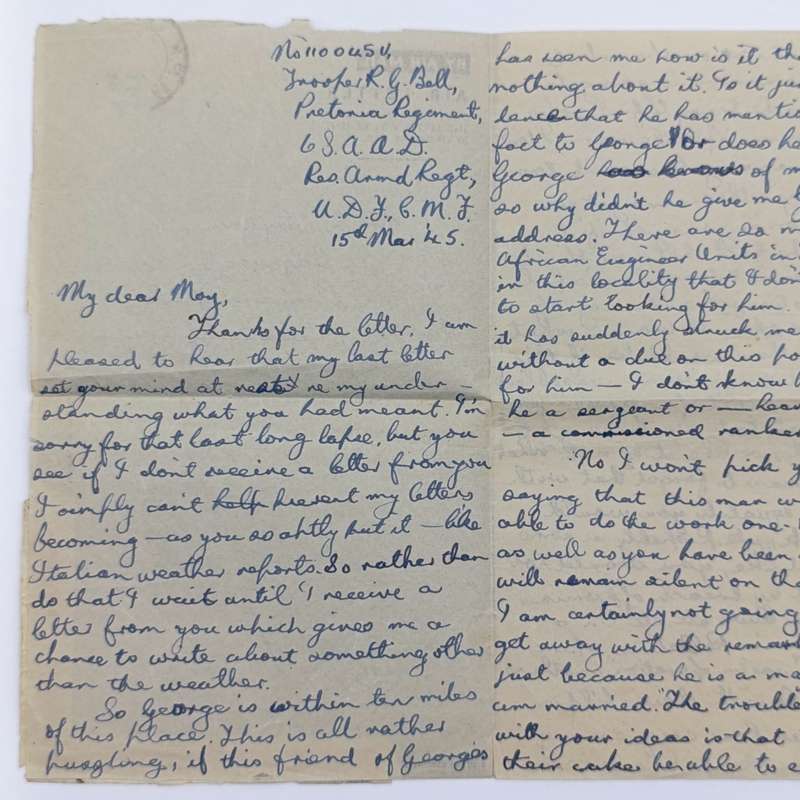 No 1100454,
Trooper R. G. Bell,
Pretoria Regiment,
6 S. A. A. D.
Res. Armd Regt,
U. D. F., C. M. F.
15th Mar '45.
My dear May,
Thanks for the letter. I am
pleased to hear that my last letter
set your mind at rest re my under-
standing what you had meant. I'm
sorry for that last long lapse, but you
see if I don't receive a letter from you
I simply can't help prevent my letters
becoming — as you so aptly put it — like
Italian weather reports. So rather than
do that I wait until I receive a
letter from you which gives me a
chance to write about something other
than the weather.
So George is within ten miles
of this place. This is all rather
puzzling, if this friend of Georges
has seen me how is it tha
nothing about it. Is it jus
that he has mentio
fact to George? Or does he
George has knows of m
so why didn't he give me
address. There are so m
African Engineer Units in
in this locality that I don
to start looking for him.
it has suddenly struck me
without a clue on this
for him — I don't know
he a sergeant or — hea
— a commissioned ranker
No I won't pick y
saying that this man w
able to do the work one-
as well as you have been
will remain silent on tha
I am certainly not going
get away with the remark
just because he is a ma
am married. The trouble
with your ideas is that
their cake be able to e